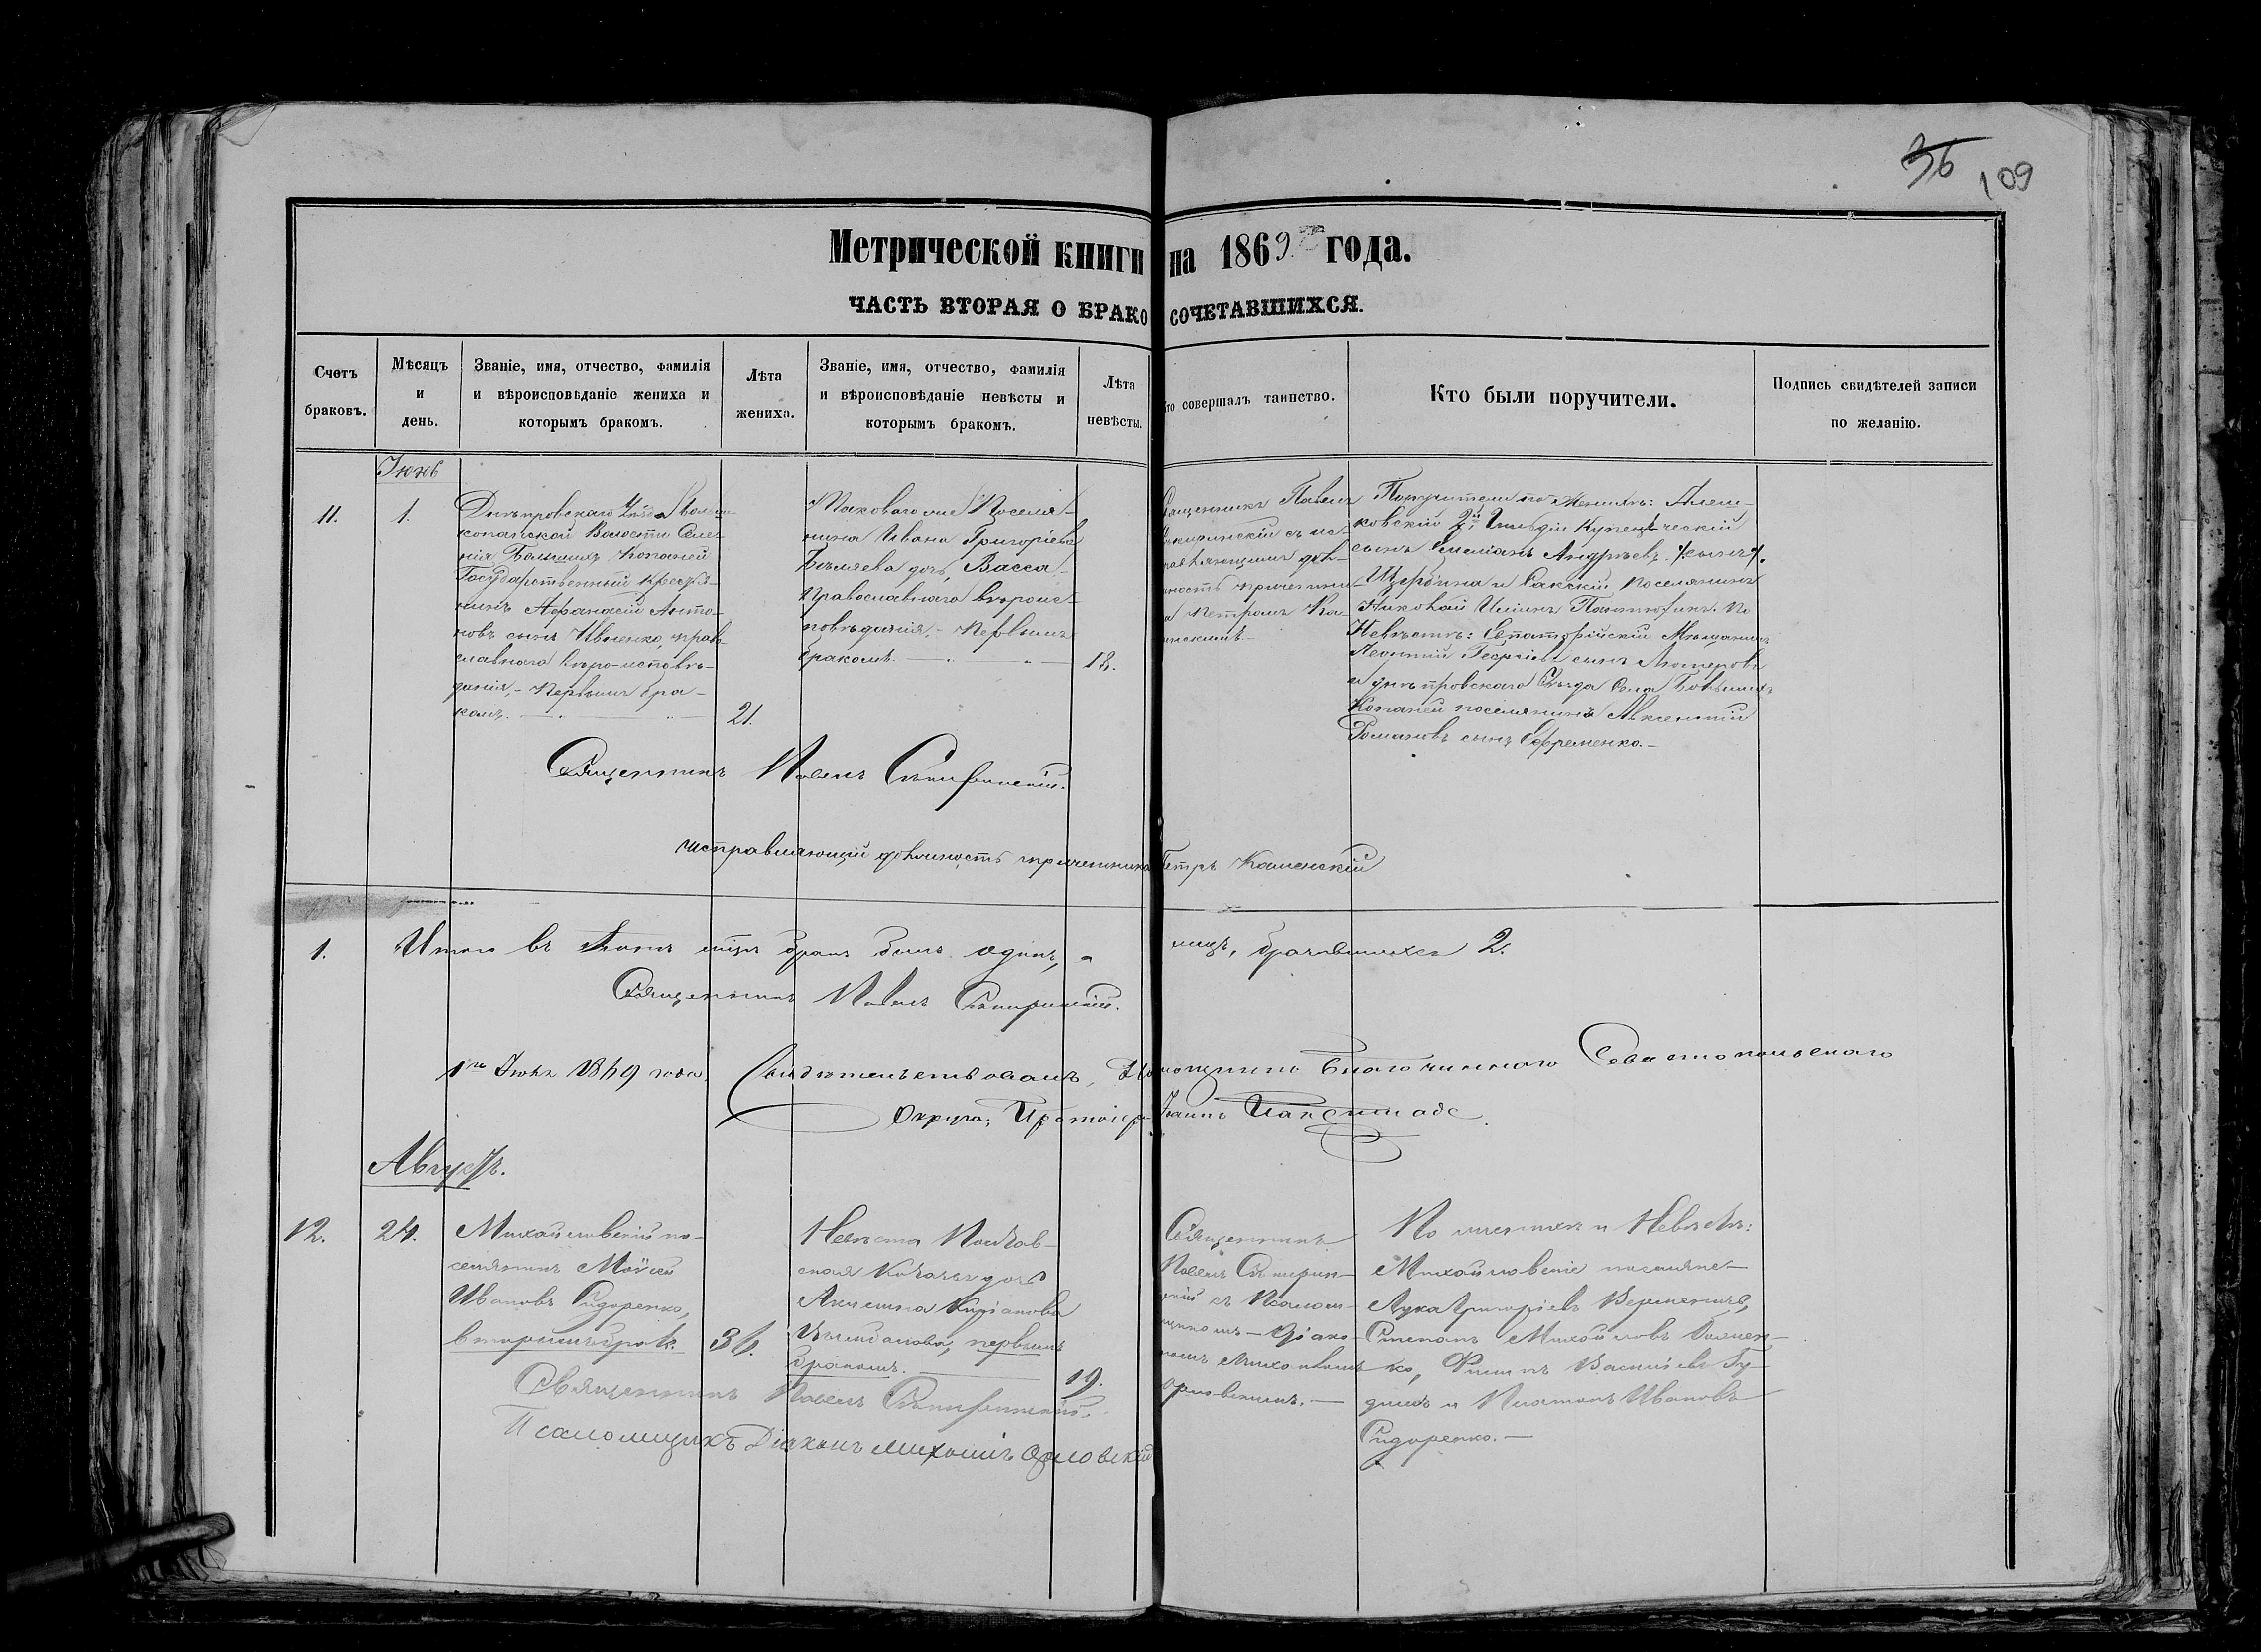 36 109
Метрической книги на 1869 года.
ЧАСТЬ ВТОРАЯ О БРАКОСОЧЕТАВШИХСЯ.
Счетъ браковъ.
Мѣсяцъ и день.
Званіе, имя, отчество, фамилія и вѣроисповѣданіе жениха и которымъ бракомъ.
Лѣта жениха.
Званіе, имя, отчество, фамилія и вѣроисповѣданіе невѣсты и которымъ бракомъ.
Лѣта невѣсты.
то совершалъ таинство.
Кто были поручители.
Подпись свидѣтелей записи по желанію.
Іюнь
11.
1.
Днѣпровскаго
копанской Волости Селе-
нія Большихъ Копаней
Государственный Крестья-
нинъ Афанасій Анто-
новъ сынъ Ивченко, право-
славнаго вѣро-исповѣ-
данія, - первымъ бра-
комъ.
21.
Поселя-
нина Ивана Григоріева
Бѣляева дочь, Васса
православнаго вѣроис-
повѣданія, - первымъ
бракомъ.
18.
Священникъ Павелъ
съ ис-
правляющимъ дол-
жность причетни-
ка Петромъ Ка-
менскимъ.
Поручители по женихѣ: Алеш-
ковскій 2й Гильдіи Купеческій
сынъ Емеліанъ Андреевъ /сынъ/.
Щербина и Сакскій поселянинъ
Николай Ильинъ По
Невѣстѣ: Евпаторійскій Мѣщанинъ
Леонтій Георгіевъ сынъ
и Днѣпровскаго Уѣзда Села Большихъ
Копаней поселянинъ Авксентій
Романовъ сынъ Ефременко.-
Священникъ Павелъ
исправляющій должность причетника Петръ Каменскій
1. Итого въ Іюнѣ мѣсяцѣ бракъ былъ одинъ, а лицъ, брачившихся 2.
Священникъ Павелъ
1го Іюля 1869 года. Свидѣтельствовалъ, Помощникъ Благочиннаго Севастопольскаго
Округа, Протоіер. Іоаннъ
Августъ.
12.
24.
Михайловскій по-
селянинъ Моѵсей
Ивановъ Сидоренко,
вторымъ брак.
36.
Невѣста
дочь
Акилина
первымъ
бракомъ.
19.
Священникъ
Павелъ
съ Псалом-
щикомъ - Діако-
номъ Михаиломъ
Орловскимъ. -
По женихѣ и Невѣстѣ:
Михайловскіе поселяне -
Лука Григорьевъ
Степанъ Михайловъ
ко, Филиппъ Васильевъ Гу-
и Платонъ Ивановъ
Сидоренко. -
Священникъ Павелъ
Псаломщикъ Діаконъ Михаилъ Орловскій